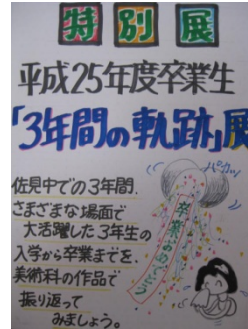 特別展
平成25年度卒業生
「3年間の軌跡」展
パーンカッ
佐見中での3年間.
さまざまな場面で
大活躍した3年生の
入学から卒業までを.
美術科の作品で
振り返って
みましょう。
卒業おめでとう